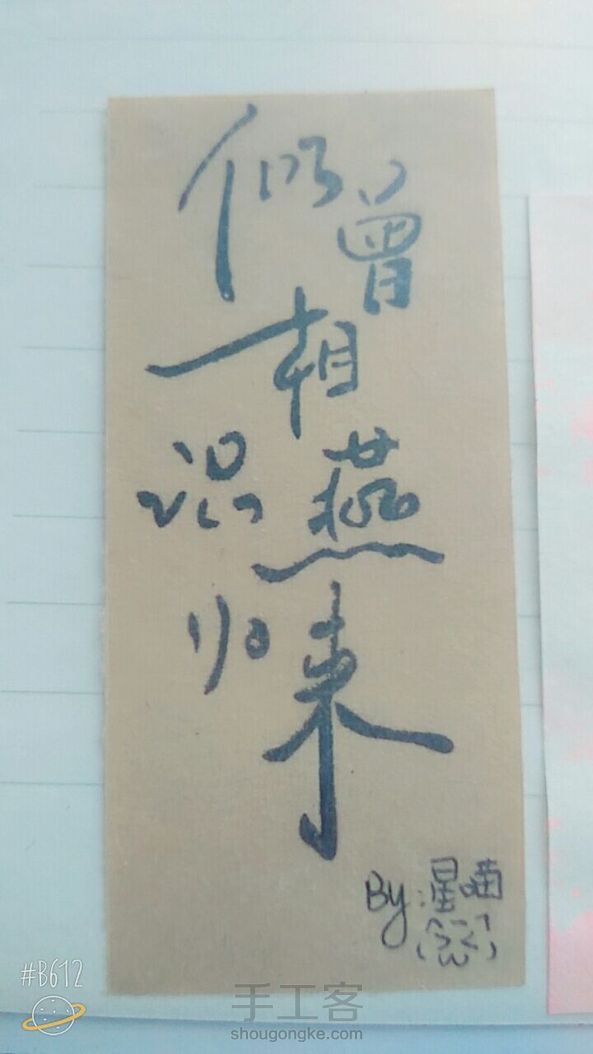 似曾
相
识燕
归来
By:星喵
#B612
手工客
shougongke.com